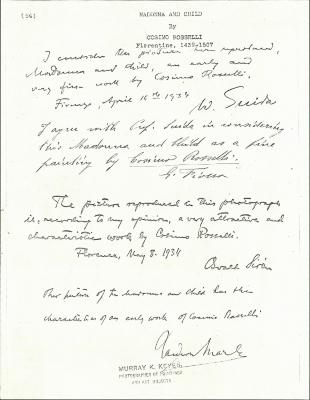 (56)
MADONNA AND CHILD
By
COSIMO ROSSELLI
Florentine, 1439-1507
I consider the picture here reproduced,
Madonna and child, an early and
very fine work by Cosimo Rosselli.
Firenze, April 10th 1934
W. Suida
I agree with Prof. Suida in considering
this Madonna and Child as a fine
painting by Cosimo Rosselli.
G. Fiocco
The picture reproduced in this photograph
is, according to my opinion, a very attractive and
characteristic work by Cosimo Rosselli.
Florence, May 8. 1934
Osvald Sirén
This picture of the Madonna and Child has the
characteristics of an early work of Cosimo Rosselli
MURRAY K. KEYES
PHOTOGRAPHER OF PAINTINGS
AND ART OBJECTS